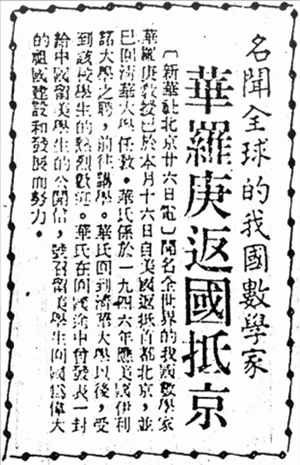 名聞全球的我國數學家
華羅庚返國抵京
〔新華社北京廿六日電〕聞名全世界的我國數學家
華羅庚教授已於本月十六日自美國返抵首都北京，並
已回淸華大學任教。華氏係於一九四六年應美國伊利
諾大學之聘，前往講學。華氏回到淸華大學以後，受
到該校學生的熱烈歡迎。華氏在回國途中曾發表一封
給中國留美學生的公開信，號召留美學生回國爲偉大
的祖國建設和發展而努力。